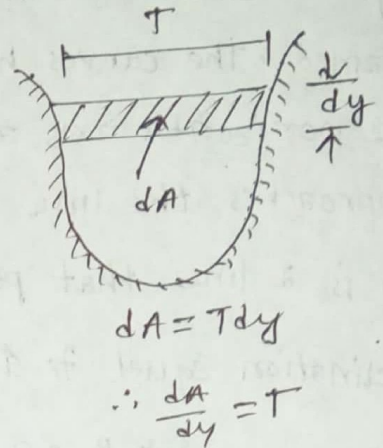 T
dy
dA
dA = Tdy
∴ dA/dy = T